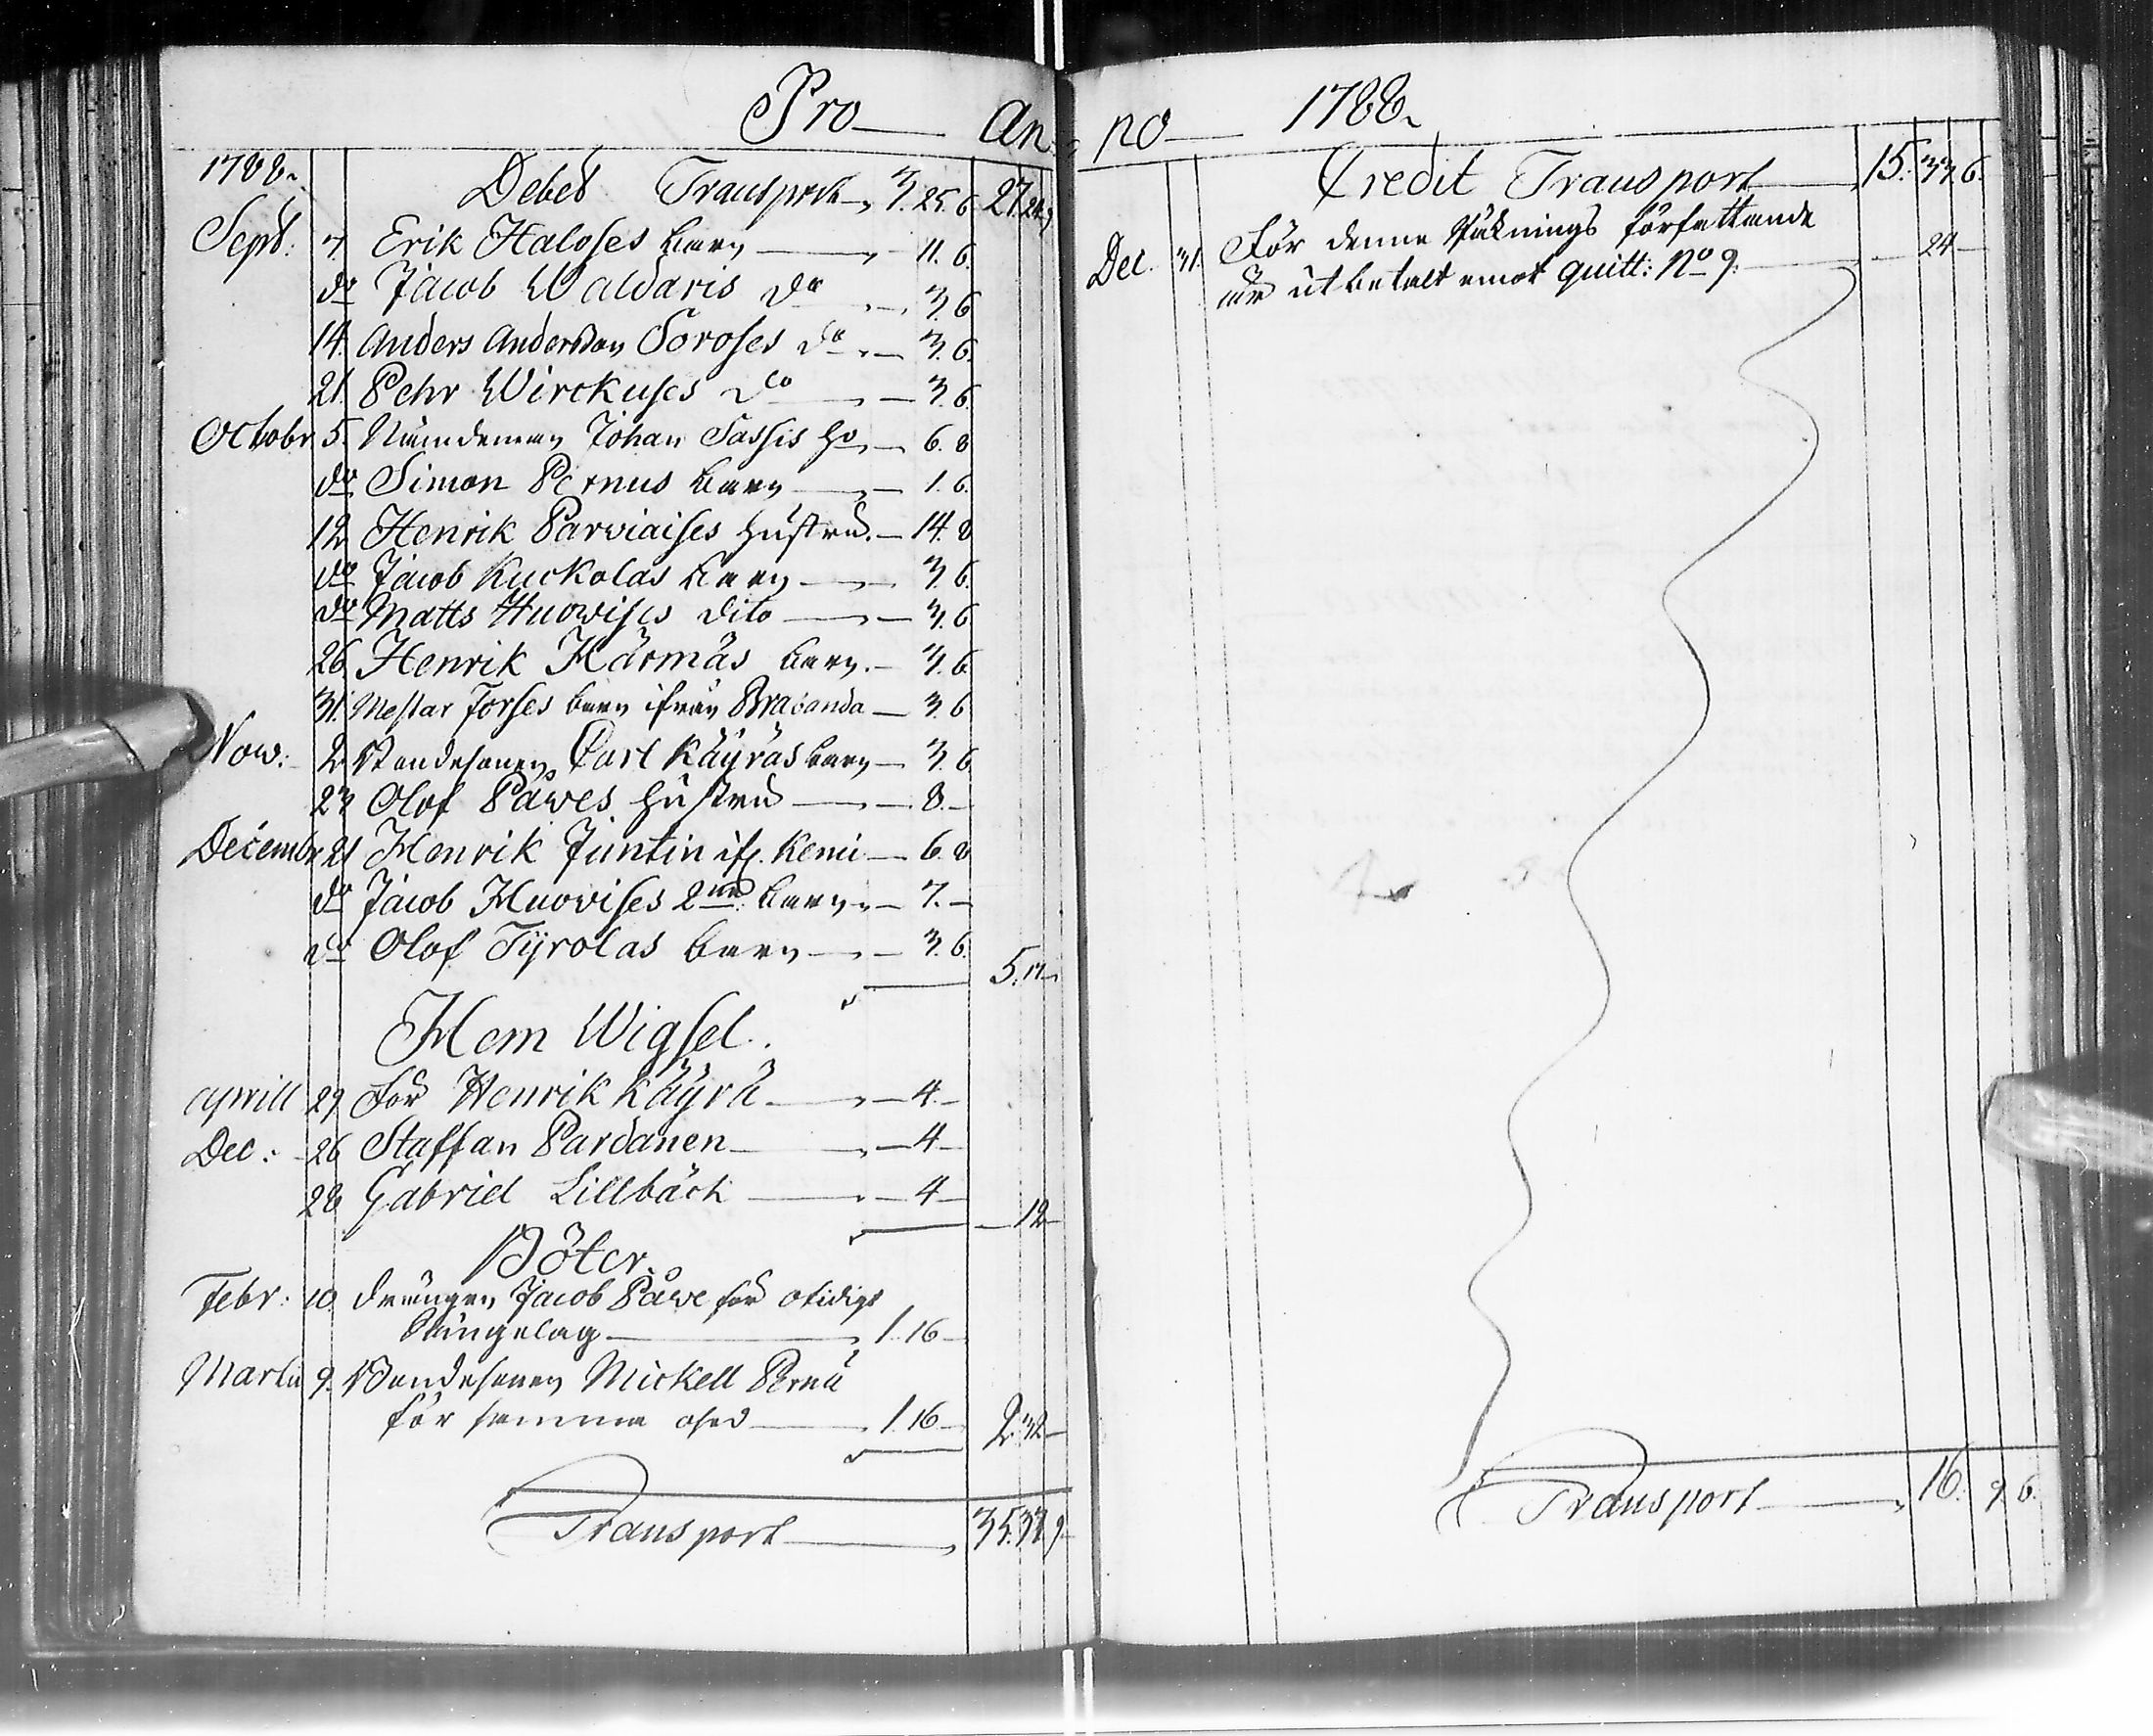 Pro — An:
1788.
Debet Transport — 3. 25. 6. 27. 24. 9
Sept: 7 Erik Haloses barn — 11. 6.
do Jacob Waldaris do — 3. 6
14. Anders Andersson Soroses do — 3. 6.
21. Pehr Wirckuses do — 3. 6.
Octobr. 5. Nämdeman Johan Sassis ho — 6. 8
do Simon Pernus barn — 1. 6.
12 Henrik Parviaises hustru — 14. 8
do Jacob Kuckolas barn — 3. 6.
do Matts Huowises dito — 3. 6
26. Henrik Härmäs barn — 3. 6.
31. Mestar Forses barn ifrån — 3. 6
Now: 2 Bondesonen Carl Käyräs barn — 3. 6
23 Olof Påwes hustru — 8. —
Decembr 21 Henrik Juntin ifr. Kemi — 6. 8
do Jacob Huovises 2ne barn — 7. —
do Olof Tyrolas barn — 3. 6. 5. 17 —
Hem Wigsel.
Aprill 29 För Henrik Käyrä — 4. —
Dec: 26 Staffan Pardanen — 4 —
28 Gabriel Lillbäck — 4 — 12 —
Böter.
Febr: 10. Drängen Jacob Påwe för otidigt
Sängelag — 1. 16 —
Martii 9. Bondesonen Mickell Pernu
för samma osed — 1. 16 — 2 32 —
Transport — 35. 37. 9
no — 1788.
Credit Transport — 15. 33. 6.
Dec. 31. För denne Räknings författande
är utbetalt emot quitt: No 9. — 24 —
Transport — 16. 9. 6.